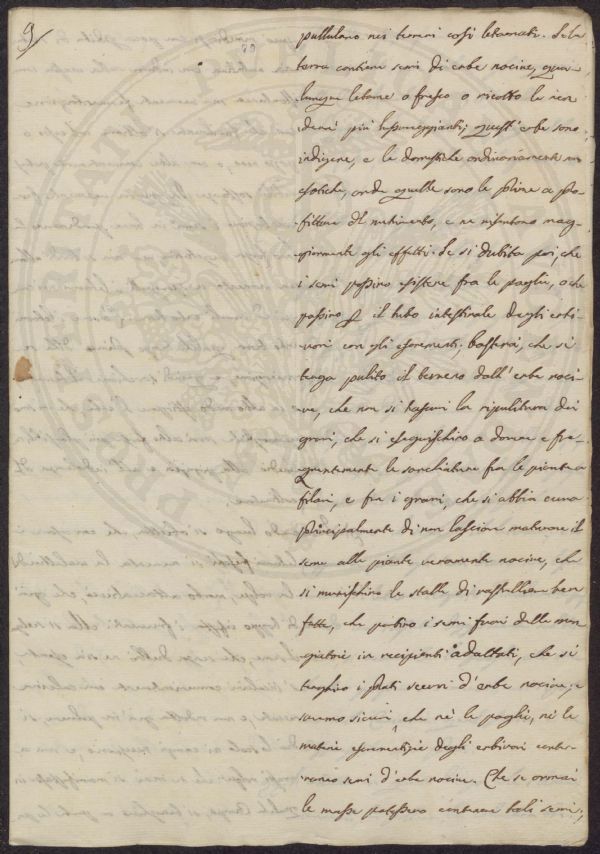 9
pullulano nei terreni così letamati. Se la
terra contiene semi di erbe nocive, qua-
lunque letame o fresco o ricotto le ren-
derà più lussureggianti; quest' erbe sono
indigene, e le domestiche ordinariamente
esotiche, onde quelle sono le prime a pro-
fittare del nutrimento, e ne risentono mag-
giormente gli effetti. Se si dubita poi, che
i semi possino esistere fra le paglie, o che
passino per il tubo intestinale degli erbi-
vori con gli escrementi, basterà, che si
tenga pulito il terreno dall' erbe noci-
ve, che non si trascuri la ripulitura dei
grani, che si eseguischino a dovere e fre-
quentemente le sarchiature fra le piante a
filari, e fra i grani, che si abbia cura
principalmente di non lasciare maturare il
seme alle piante veramente nocive, che
si munischino le stalle di rastelliere ben
fatte, che portino i semi fuori delle man-
giatoie in recipienti adattati, che si
tenghino i prati scevri d' erbe nocive, e
saremo sicuri, che nè le paglie, nè le
materie escrementizie degli erbivori conter-
ranno semi d' erbe nocive. Che se ormai
le masse potessero contenere tali semi,